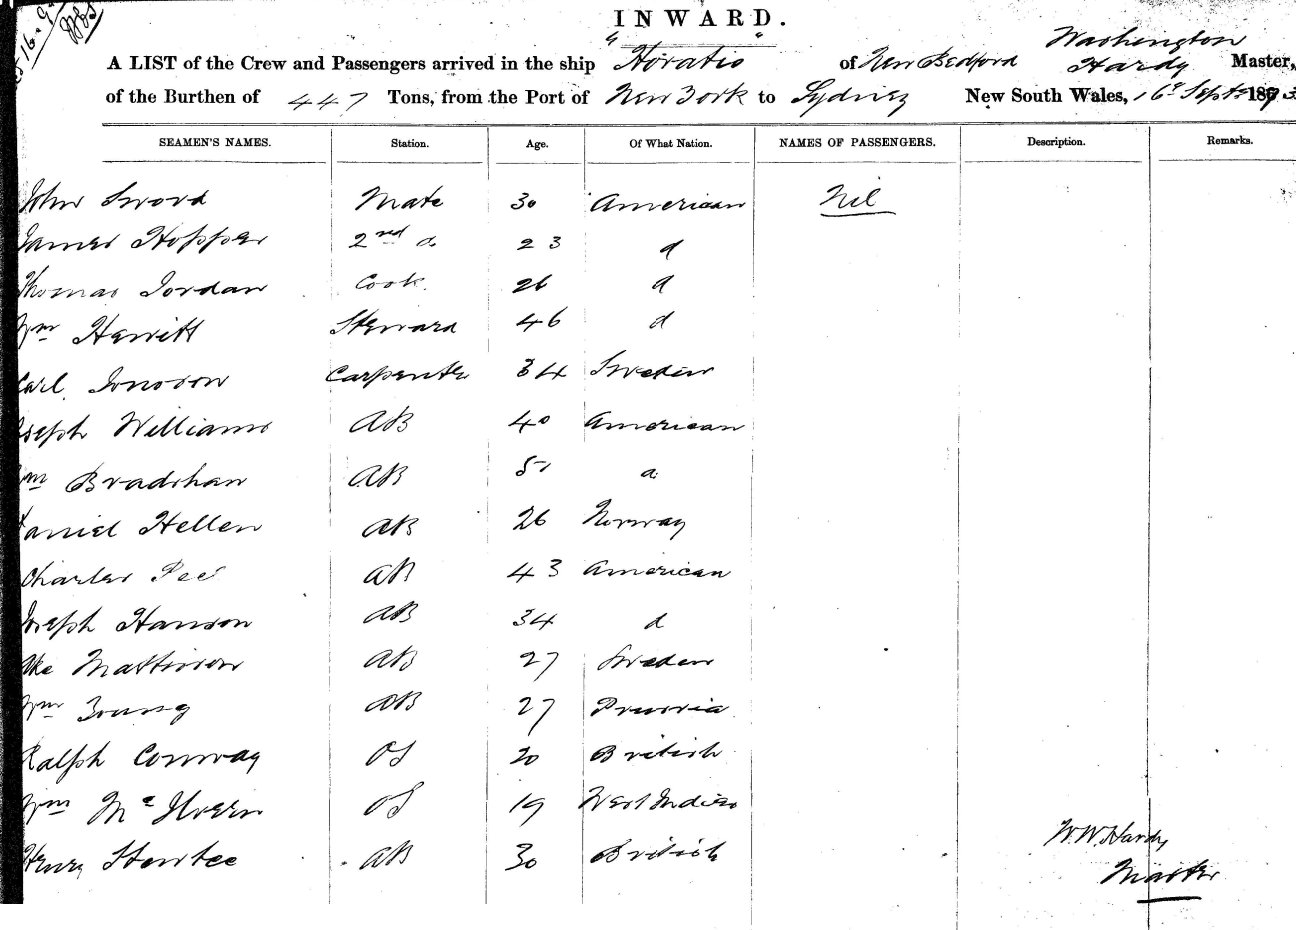 INWARD.
A LIST of the Crew and Passengers arrived in the ship "Horatio" of New Bedford Washington Hardy Master,
of the Burthen of 447 Tons, from the Port of New York to Sydney New South Wales, 16 Sept. 187
SEAMEN'S NAMES. Station. Age. Of What Nation. NAMES OF PASSENGERS. Description. Remarks.
John Sword Mate 30 American Nil
James Hopper 2nd d 23 d
Thomas Jordan Cook 26 d
Wm Hewitt Steward 46 d
Carl Jonoson Carpenter 34 Sweden
Joseph Williams AB 40 American
Wm Bradshaw AB 51 d
Daniel Hellen AB 26 Norway
Charles AB 43 American
Joseph Hanson AB 34 d
Mattisson AB 27 Sweden
Wm Young AB 27 Prussia
Ralph Conway OS 20 British
Wm OS 19 West Indies
Henry AB 30 British
W. W. Hardy
Master